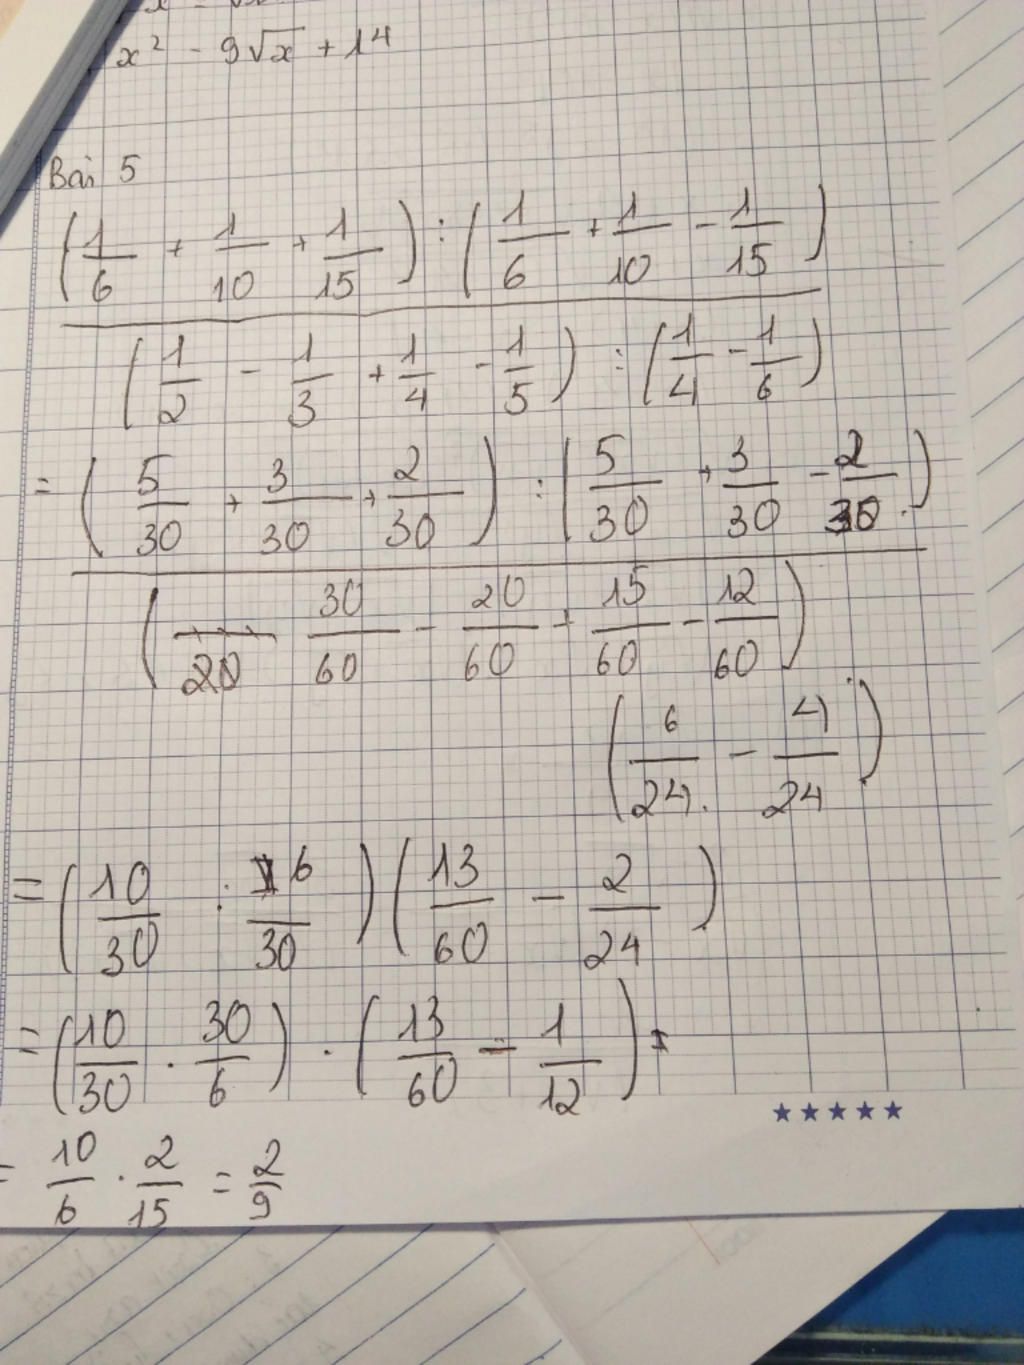 x² - 9√x + 14
Bài 5
(1/6 + 1/10 + 1/15) : (1/6 + 1/10 - 1/15)
(1/2 - 1/3 + 1/4 - 1/5) : (1/4 - 1/6)
= (5/30 + 3/30 + 2/30) : (5/30 + 3/30 - 2/30)
(30/60 - 20/60 + 15/60 - 12/60)
(6/24 - 4/24)
= (10/30 : 6/30) (13/60 - 2/24)
= (10/30 . 30/6) . (13/60 - 1/12)
= 10/6 . 2/15 = 2/9